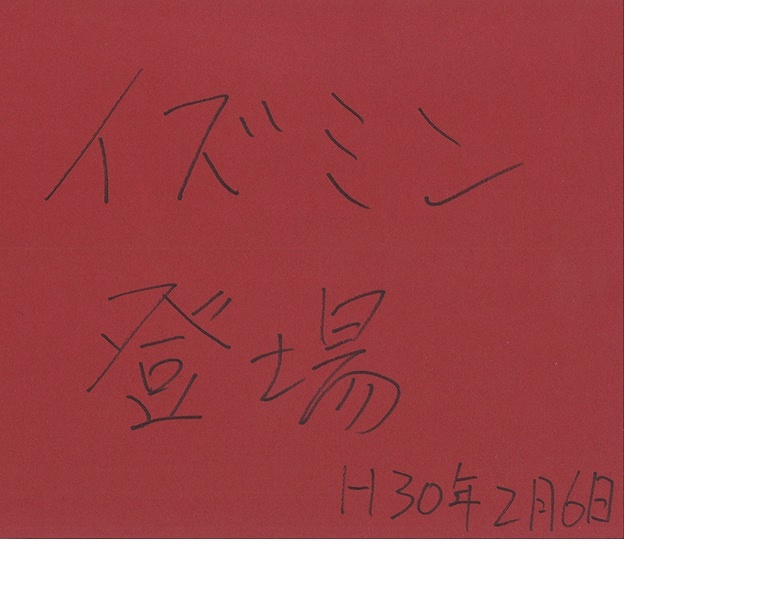 イズミン
登場
H30年2月6日